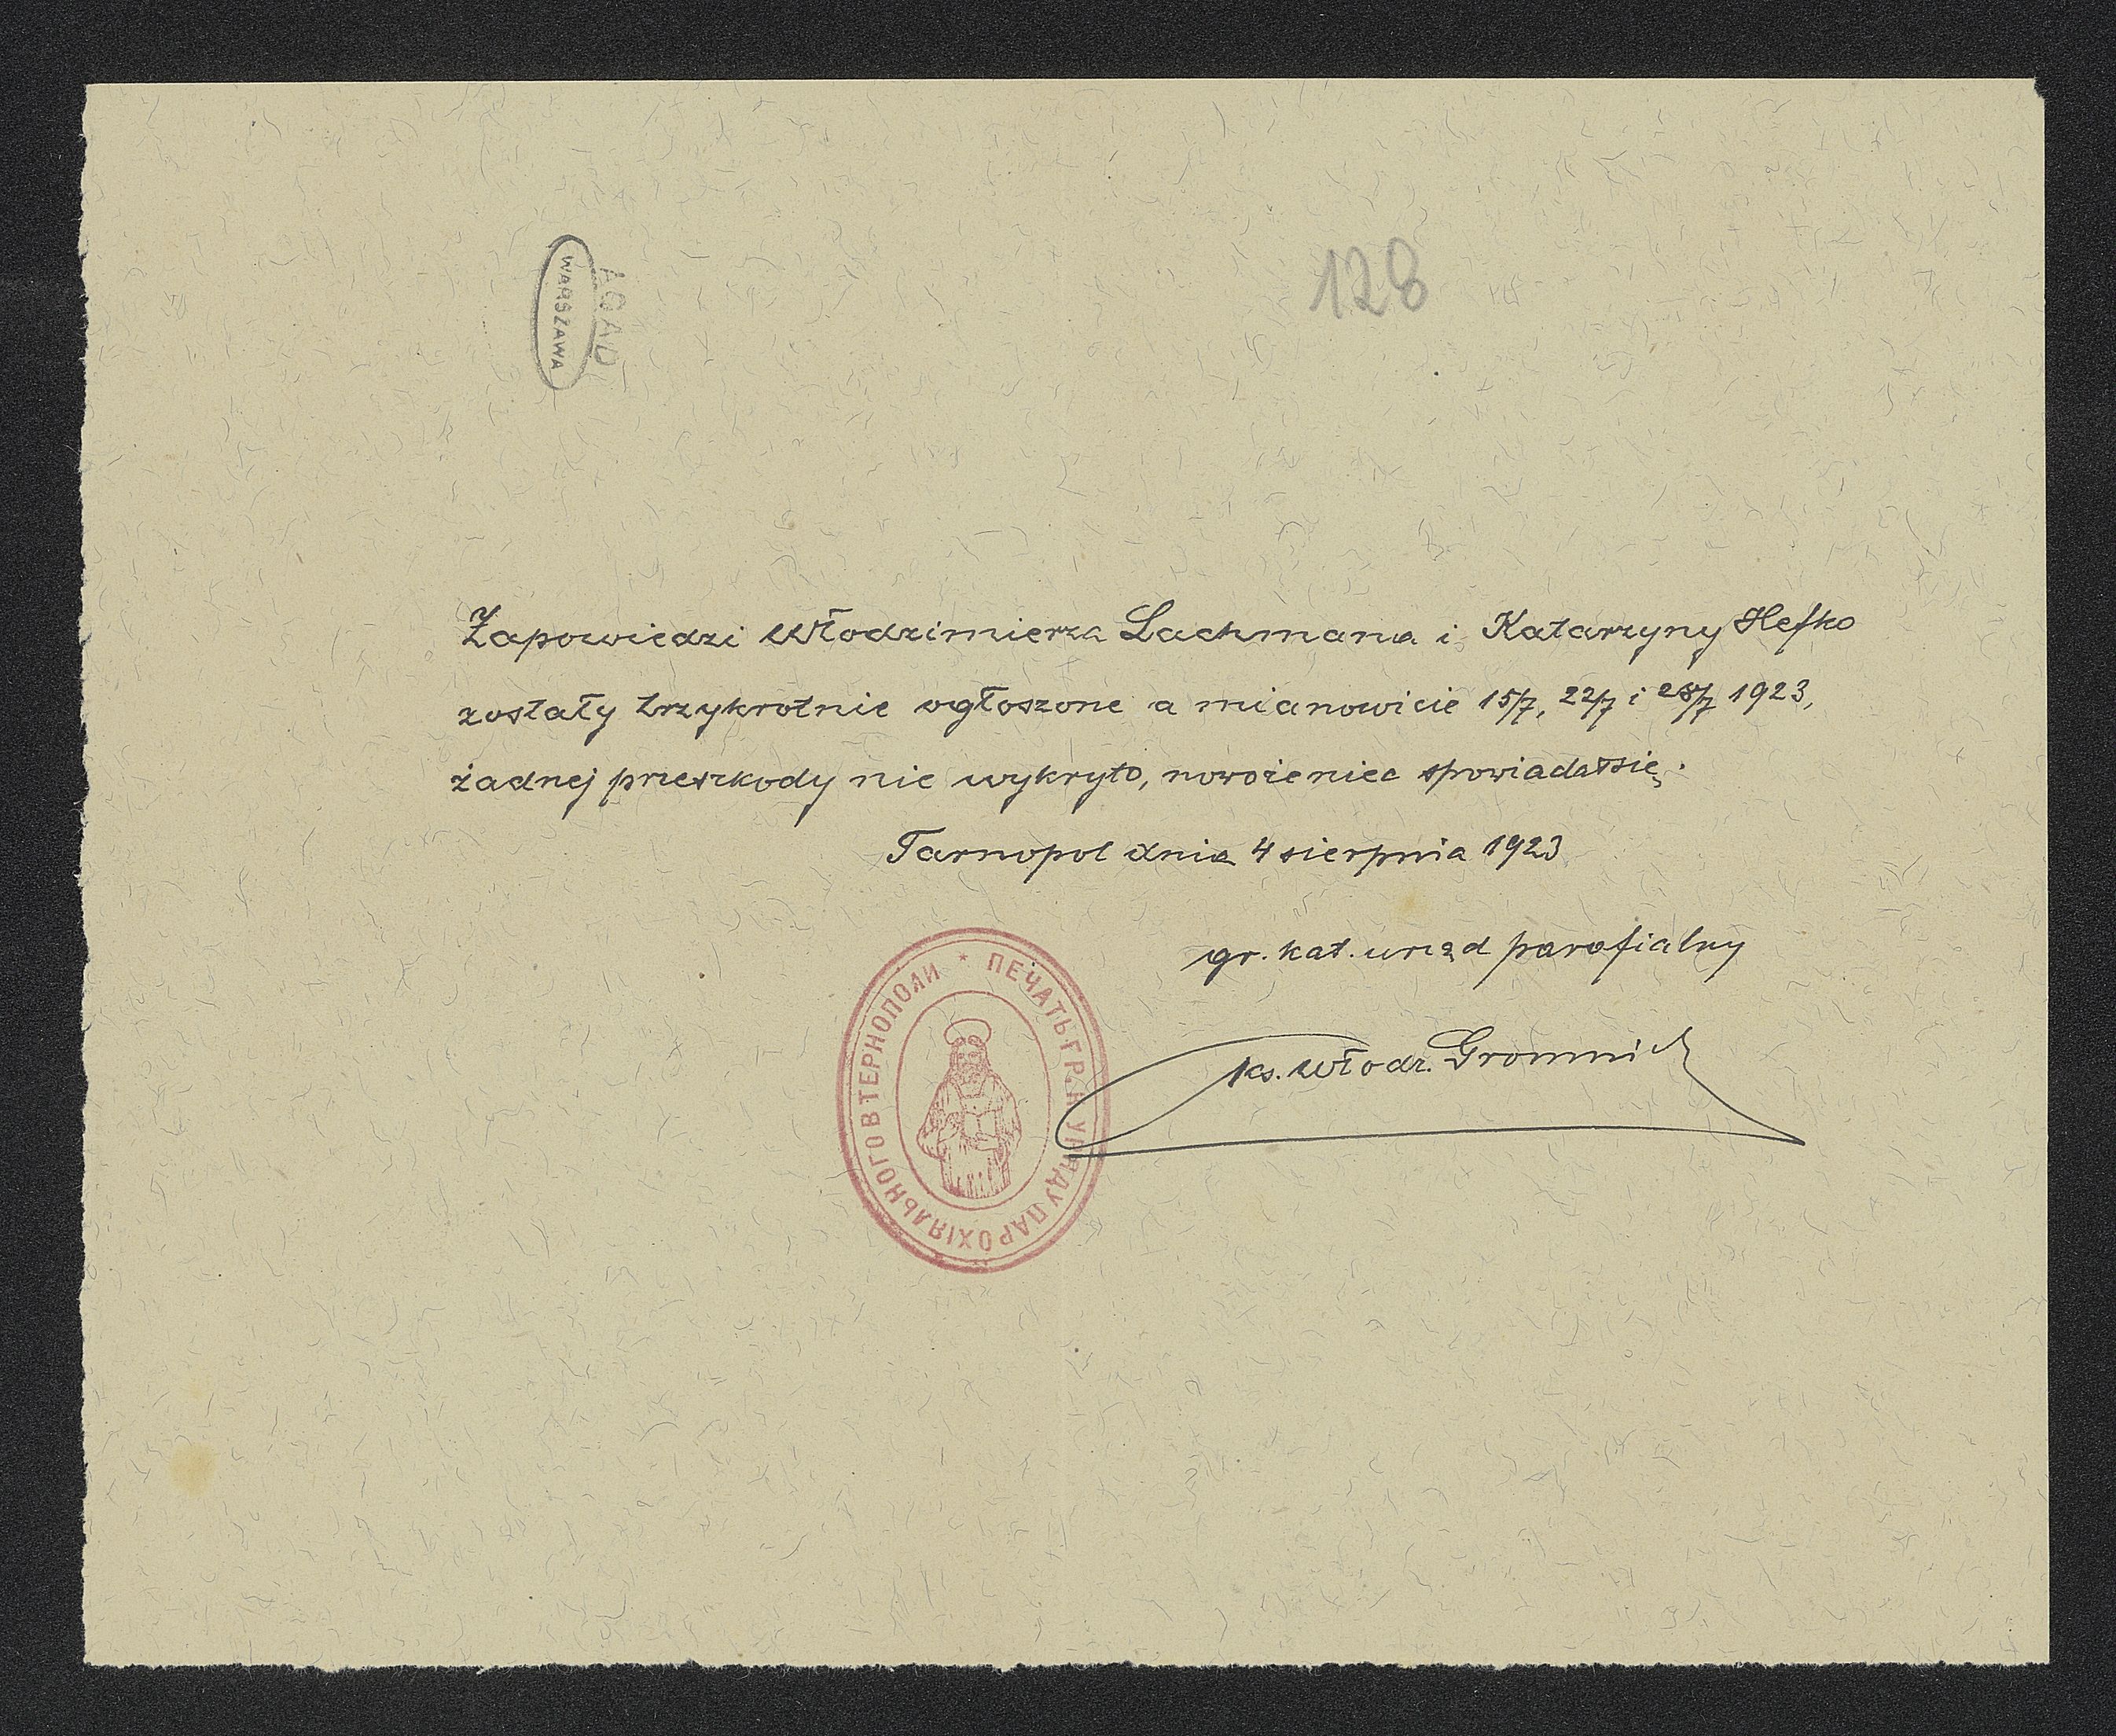 AGAD
WARSZAWA
128
Zapowiedzi Włodzimierza Lachmana i Katarzyny Hefko
zostały trzykrotnie ogłoszone a mianowicie 15/7, 22/7 i 28/7 1923,
żadnej przeszkody nie wykryto, nowożeniec spowiadał się.
Tarnopol dnia 4 sierpnia 1923
gr. kat. urząd parafialny
ks. Włodz. Gromnicki
ПЕЧАТЬ ГР. К. УРЯДУ ПАРОХІЯЛЬНОГО В ТЕРНОПОЛИ *